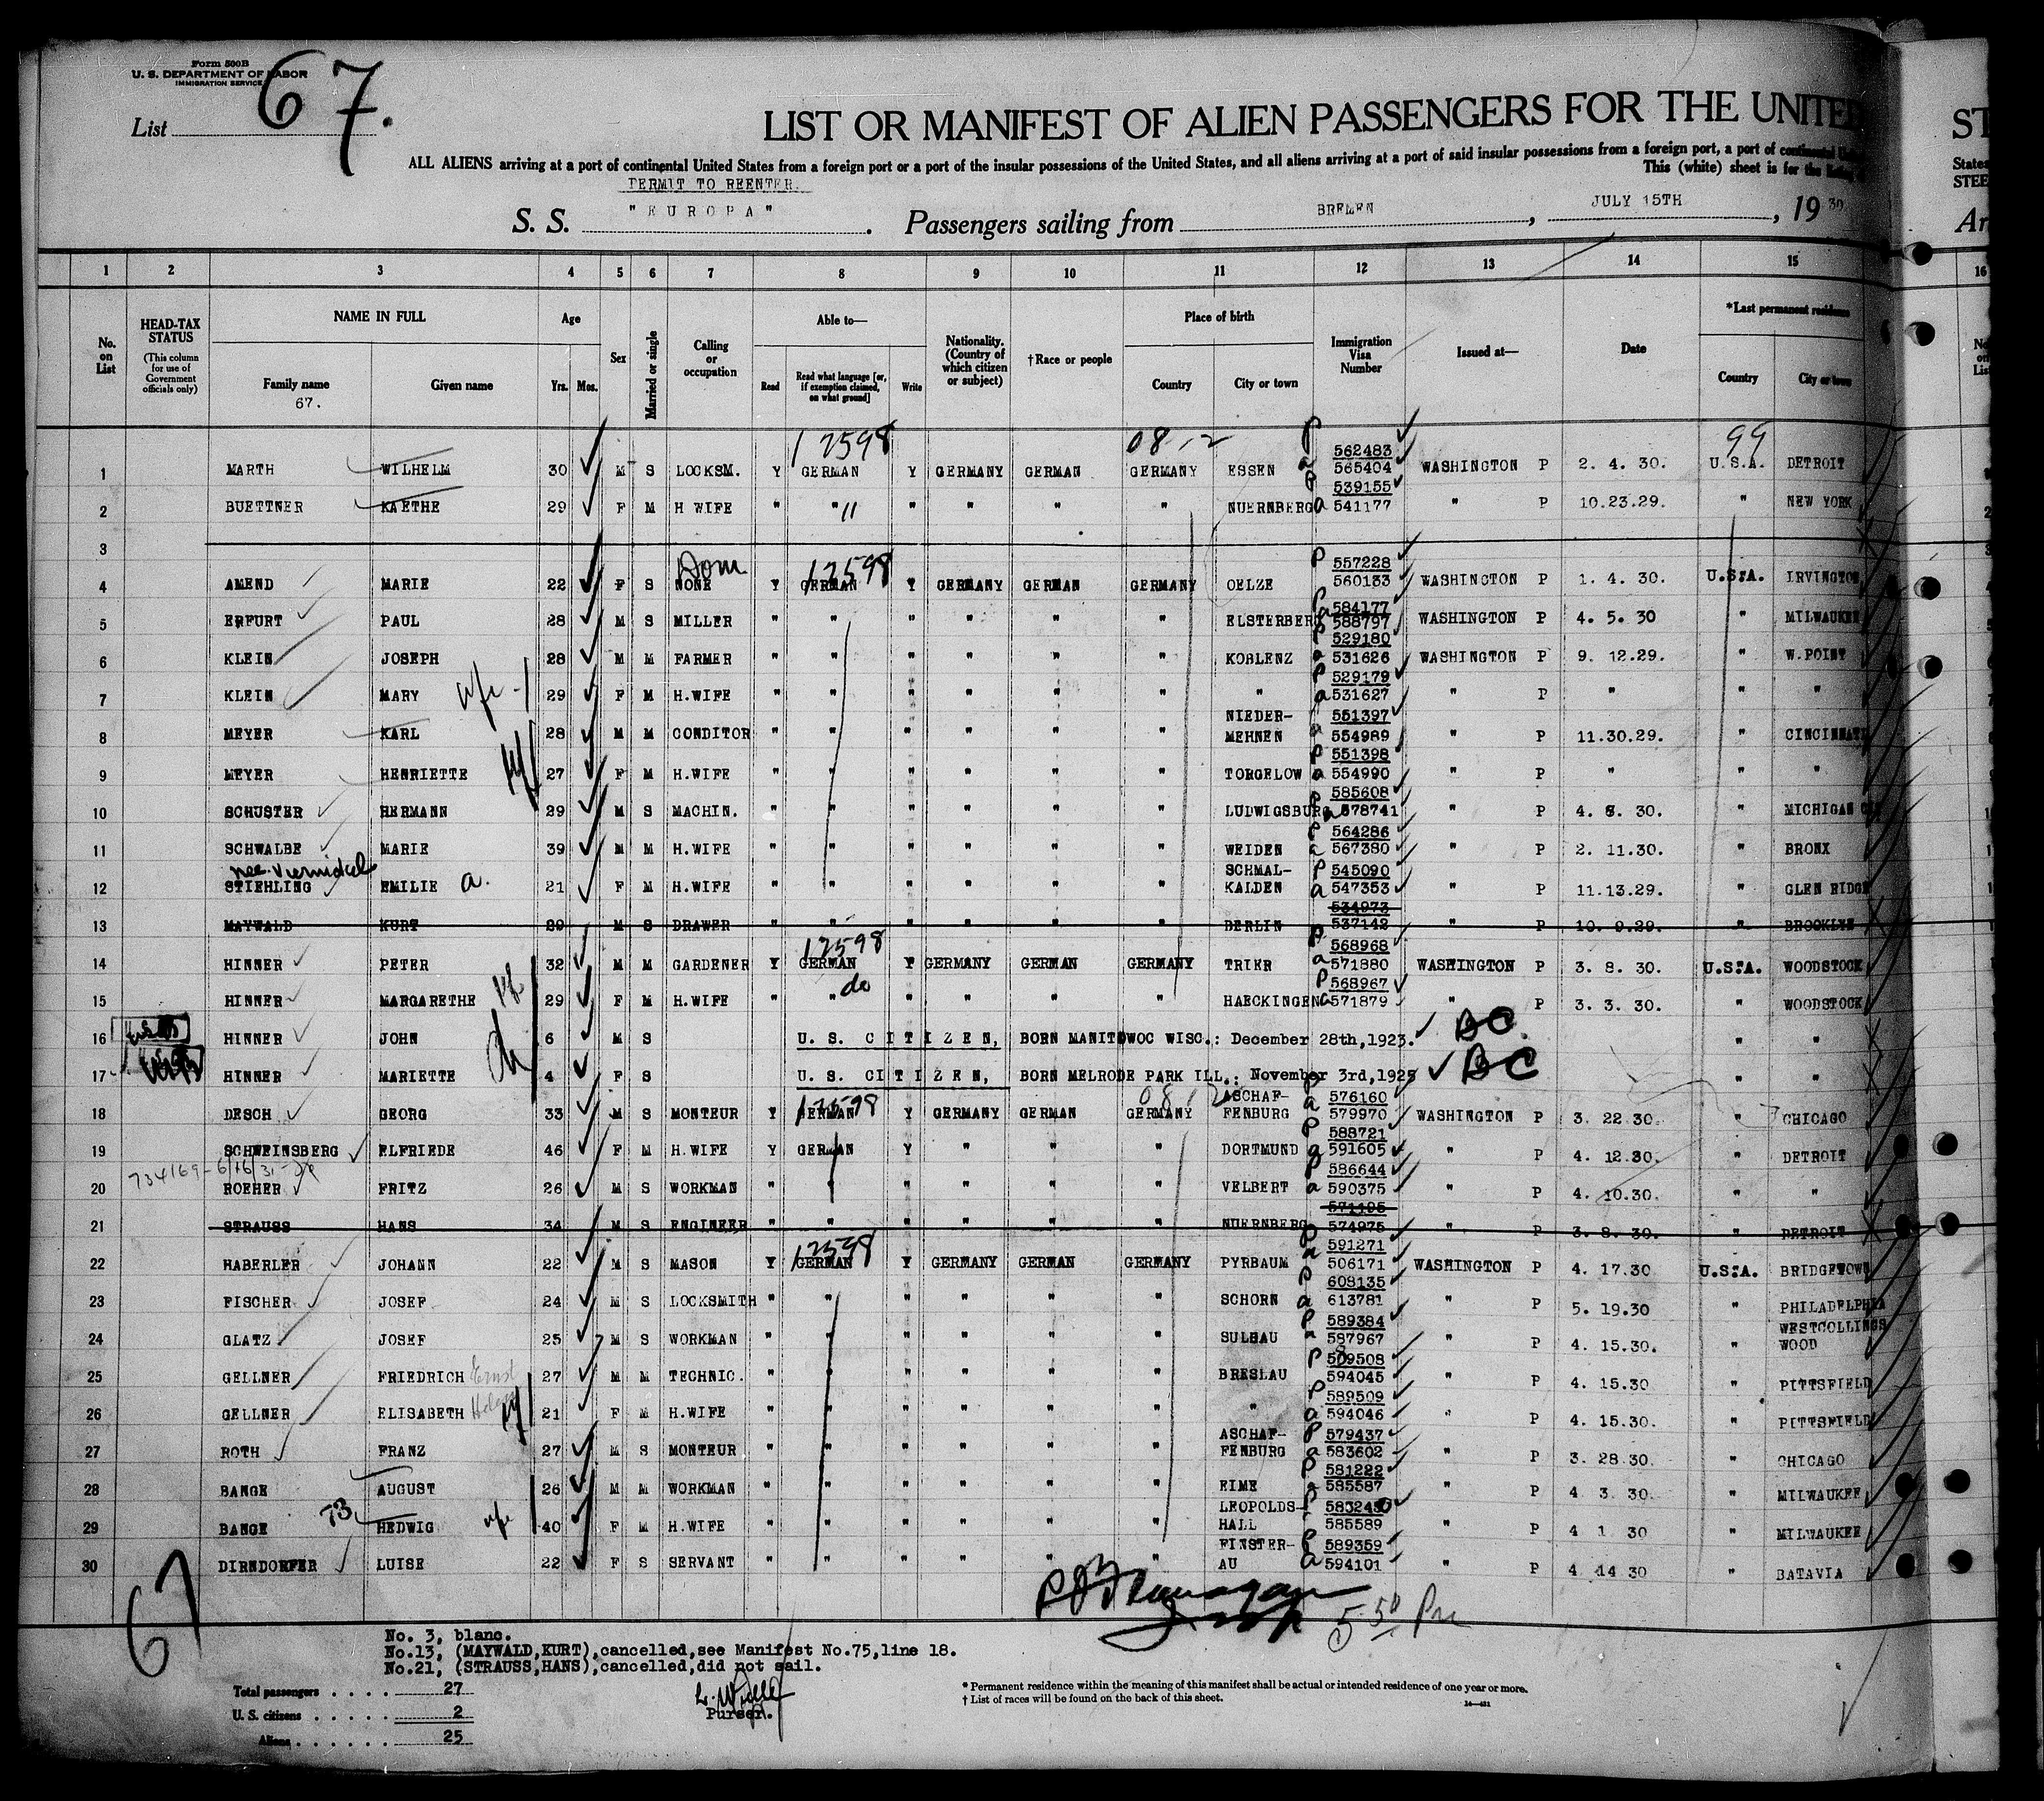 Form 500B
U. S. DEPARTMENT OF LABOR
IMMIGRATION SERVICE
List 67.
LIST OR MANIFEST OF ALIEN PASSENGERS FOR THE UNITED
ST
ALL ALIENS arriving at a port of continental United States from a foreign port or a port of the insular possessions of the United States, and all aliens arriving at a port of said insular possessions from a foreign port, a port of continental
States
This (white) sheet is for the
STEE
PERMIT TO REENTER.
S. S. "EUROPA". Passengers sailing from BREMEN, JULY 15TH, 1930
Ar
1 2 3 4 5 6 7 8 9 10 11 12 13 14 15 16
No. on List
HEAD-TAX STATUS (This column for use of Government officials only)
NAME IN FULL
Family name
67.
Given name
Age
Yrs. Mos.
Sex
Married or single
Calling or occupation
Able to—
Read
Read what language [or, if exemption claimed, on what ground]
Write
Nationality. (Country of which citizen or subject)
†Race or people
Place of birth
Country
City or town
Immigration Visa Number
Issued at—
Date
*Last permanent residence
Country
City or town
12598 08-2 99
562483
1 MARTH WILHELM 30 M S LOCKSM. Y GERMAN Y GERMANY GERMAN GERMANY ESSEN 565404 WASHINGTON P 2. 4. 30. U.S.A. DETROIT
539155
2 BUETTNER KAETHE 29 F M H WIFE " " " " " " NUERNBERG 541177 " P 10.23.29. " NEW YORK
3
Dom 12598 557228
4 AMEND MARIE 22 F S NONE Y GERMAN Y GERMANY GERMAN GERMANY OELZE 560133 WASHINGTON P 1. 4. 30. U.S.A. IRVINGTON
584177
5 ERFURT PAUL 28 M S MILLER " " " " " " ELSTERBERG 588797 WASHINGTON P 4. 5. 30 " MILWAUKEE
529180
6 KLEIN JOSEPH 28 M M FARMER " " " " " " KOBLENZ 531626 WASHINGTON P 9. 12.29. " W.POINT
529179
7 KLEIN MARY wfe 29 F M H.WIFE " " " " " " " 531627 " P " " "
NIEDER- 551397
8 MEYER KARL 28 M M CONDITOR " " " " " " MEHNEN 554989 " P 11.30.29. " CINCINNATI
551398
9 MEYER HENRIETTE 27 F M H.WIFE " " " " " " TORGELOW 554990 " P " " "
585608
10 SCHUSTER HERMANN 29 M S MACHIN. " " " " " " LUDWIGSBURG 578741 " P 4. 8. 30. " MICHIGAN
564286
11 SCHWALBE MARIE 39 M M H.WIFE " " " " " " WEIDEN 567380 " P 2. 11.30. " BRONX
nee SCHMAL- 545090
12 STIEHLING EMILIE a. 21 F M H.WIFE " " " " " " KALDEN 547353 " P 11.13.29. " GLEN RIDGE
534973
13 MAYWALD KURT 29 M S DRAWER " " " " " " BERLIN 537142 " P 10. 9.29. " BROOKLYN
12598 568968
14 HINNER PETER 32 M M GARDENER Y GERMAN Y GERMANY GERMAN GERMANY TRIER 571880 WASHINGTON P 3. 8. 30. U.S.A. WOODSTOCK
do 568967
15 HINNER MARGARETHE 29 F M H.WIFE " " " " " " HAECKINGEN 571879 " P 3. 3. 30. " WOODSTOCK
16 HINNER JOHN 6 M S U. S. CITIZEN, BORN MANITOWOC WISC.: December 28th,1923. BC " "
17 HINNER MARIETTE 4 F S U. S. CITIZEN, BORN MELRODE PARK ILL.: November 3rd,1925 BC " "
12598 ASCHAF- 576160
18 DESCH GEORG 33 M S MONTEUR Y GERMAN Y GERMANY GERMAN GERMANY FENBURG 579970 WASHINGTON P 3. 22.30. " CHICAGO
588721
19 SCHWEINSBERG ELFRIEDE 46 F M H.WIFE Y GERMAN Y " " " DORTMUND 591605 " P 4. 12.30. " DETROIT
586644
20 ROEHER FRITZ 26 M S WORKMAN " " " " " " VELBERT 590375 " P 4. 10.30. " "
571195
21 STRAUSS HANS 34 M S ENGINEER " " " " " " NUERNBERG 574975 " P 3. 8. 30. " DETROIT
12598 591271
22 HABERLER JOHANN 22 M S MASON Y GERMAN Y GERMANY GERMAN GERMANY PYRBAUM 506171 WASHINGTON P 4. 17.30 U.S.A. BRIDGETOWN
608135
23 FISCHER JOSEF 24 M S LOCKSMITH " " " " " " SCHORN 613781 " P 5. 19.30 " PHILADELPHIA
589384 WESTCOLLINGS
24 GLATZ JOSEF 25 M S WORKMAN " " " " " " SULBAU 587967 " P 4. 15.30. " WOOD
509508
25 GELLNER FRIEDRICH Ernst 27 M M TECHNIC. " " " " " " BRESLAU 594045 " P 4. 15.30 " PITTSFIELD
589509
26 GELLNER ELISABETH 21 F M H.WIFE " " " " " " " 594046 " P 4. 15.30. " PITTSFIELD
ASCHAF- 579437
27 ROTH FRANZ 27 M S MONTEUR " " " " " " FENBURG 583602 " P 3. 28.30. " CHICAGO
581222
28 BANGE AUGUST 26 M M WORKMAN " " " " " " EIME 585587 " P 4 3. 30. " MILWAUKEE
73 LEOPOLDS-
29 BANGE HEDWIG wfe 40 F M H.WIFE " " " " " " HALL 585589 " P 4 1 30 " MILWAUKEE
FINSTER- 589359
30 DIRNDORFER LUISE 22 F S SERVANT " " " " " " AU 594101 " P 4 14 30 " BATAVIA
67
5 50 Pm
No. 3, blanc.
No.13, (MAYWALD,KURT),cancelled,see Manifest No.75,line 18.
No.21, (STRAUSS,HANS),cancelled,did not sail.
Total passengers . . . . 27
U. S. citizens . . . . . 2
Aliens . . . . . . 25
Purser.
* Permanent residence within the meaning of this manifest shall be actual or intended residence of one year or more.
† List of races will be found on the back of this sheet.